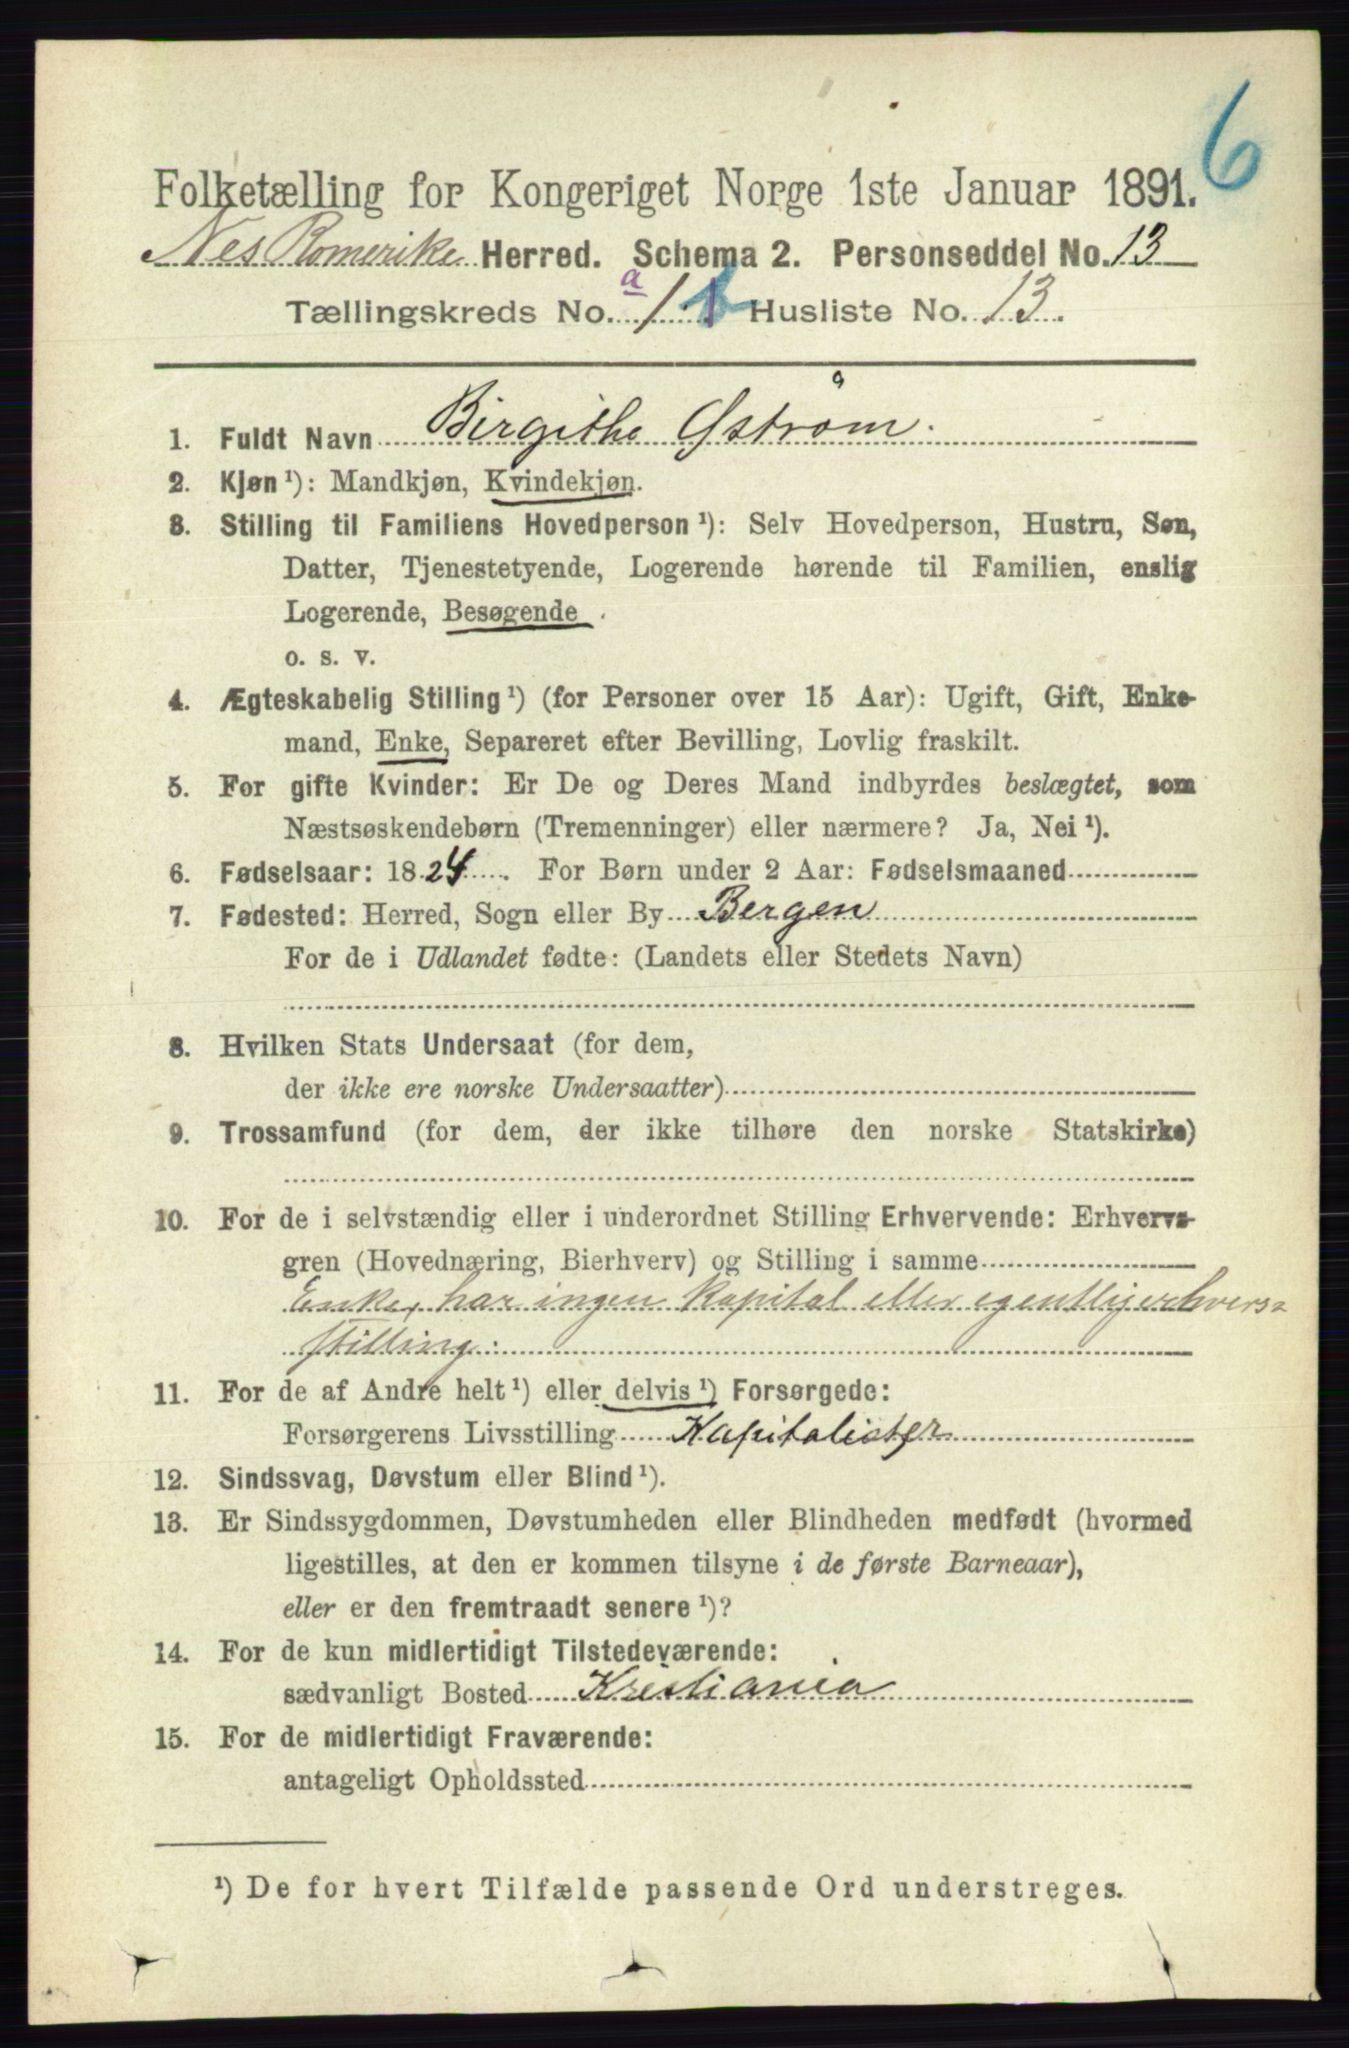 6
Folketælling for Kongeriget Norge 1ste Januar 1891.
Nes Romerike Herred. Schema 2. Personseddel No. 13
a
Tællingskreds No. 1 Husliste No. 13.
1. Fuldt Navn Birgithe Øström.
2. Kjøn ¹): Mandkjøn, Kvindekjøn.
3. Stilling til Familiens Hovedperson ¹): Selv Hovedperson, Hustru, Søn,
Datter, Tjenestetyende, Logerende hørende til Familien, enslig
Logerende, Besøgende.
o. s. v.
4. Ægteskabelig Stilling ¹) (for Personer over 15 Aar): Ugift, Gift, Enke-
mand, Enke, Separeret efter Bevilling, Lovlig fraskilt.
5. For gifte Kvinder: Er De og Deres Mand indbyrdes beslægtet, som
Næstsøskendebørn (Tremenninger) eller nærmere? Ja, Nei ¹).
6. Fødselsaar: 1824. For Børn under 2 Aar: Fødselsmaaned
7. Fødested: Herred, Sogn eller By Bergen
For de i Udlandet fødte: (Landets eller Stedets Navn)
8. Hvilken Stats Undersaat (for dem,
der ikke ere norske Undersaatter)
9. Trossamfund (for dem, der ikke tilhøre den norske Statskirke)
10. For de i selvstændig eller i underordnet Stilling Erhvervende: Erhvervs-
gren (Hovednæring, Bierhverv) og Stilling i samme
Enke, har ingen Kapital eller egentlig erhvers=
stilling.
11. For de af Andre helt ¹) eller delvis ¹) Forsørgede:
Forsørgerens Livsstilling Kapitalister
12. Sindssvag, Døvstum eller Blind ¹).
13. Er Sindssygdommen, Døvstumheden eller Blindheden medfødt (hvormed
ligestilles, at den er kommen tilsyne i de første Barneaar),
eller er den fremtraadt senere ¹)?
14. For de kun midlertidigt Tilstedeværende:
sædvanligt Bosted Kristiania
15. For de midlertidigt Fraværende:
antageligt Opholdssted
¹) De for hvert Tilfælde passende Ord understreges.